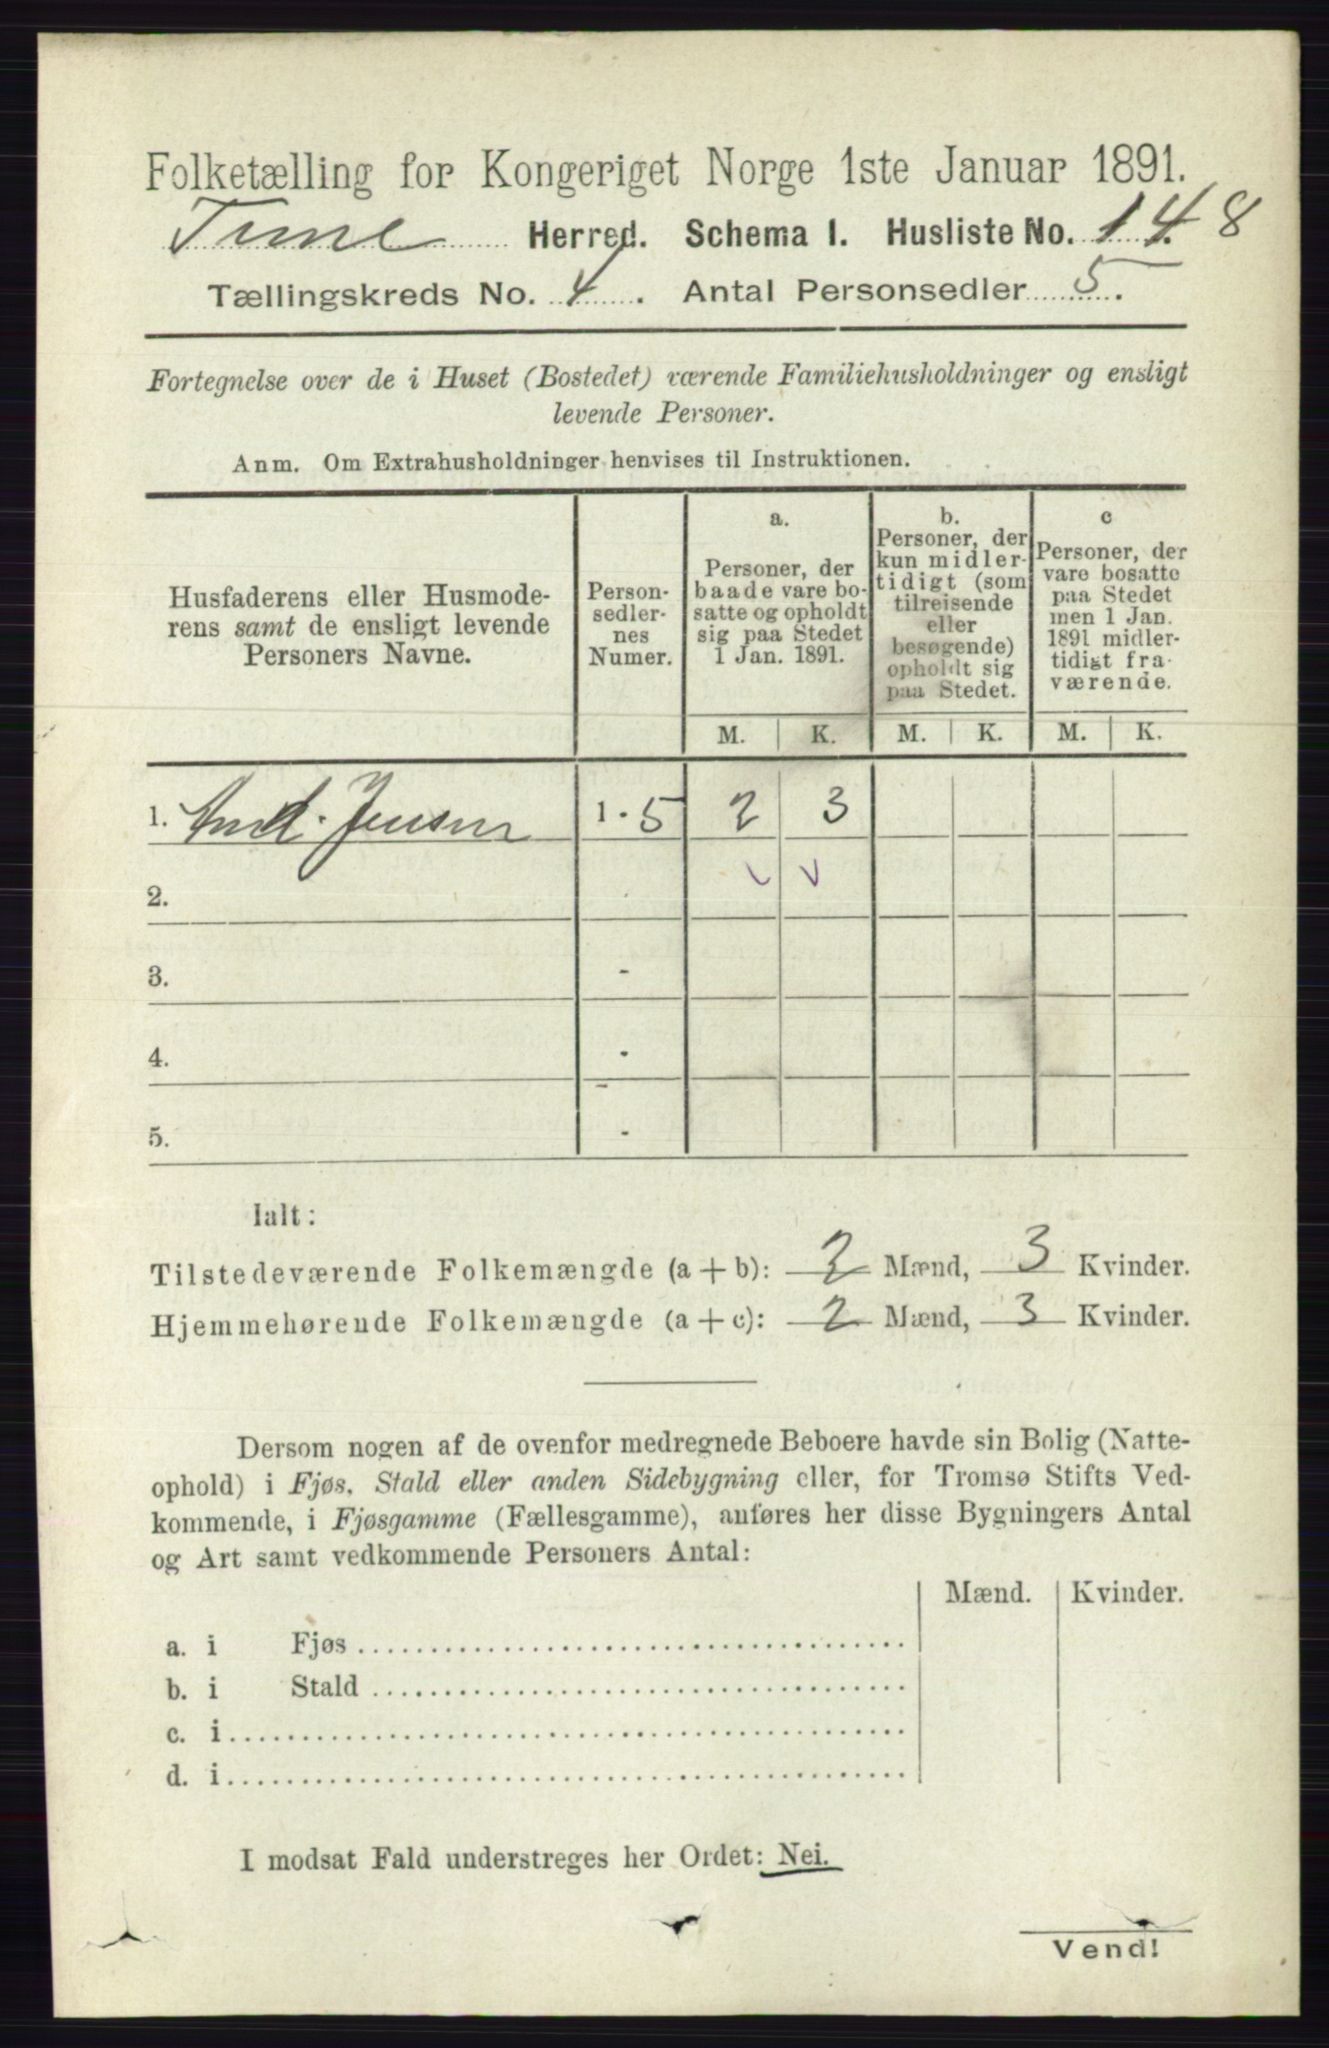 Folketælling for Kongeriget Norge 1ste Januar 1891.
Tune Herred. Schema I. Husliste No. 148
Tællingskreds No. 4. Antal Personsedler 5.
Fortegnelse over de i Huset (Bostedet) værende Familiehusholdninger og ensligt
levende Personer.
Anm. Om Extrahusholdninger henvises til Instruktionen.
Husfaderens eller Husmode-
rens samt de ensligt levende
Personers Navne.
Person-
sedler-
nes
Numer.
a.
Personer, der
baade vare bo-
satte og opholdt
sig paa Stedet
1 Jan. 1891.
b.
Personer, der
kun midler-
tidigt (som
tilreisende
eller
besøgende)
opholdt sig
paa Stedet.
c
Personer, der
vare bosatte
paa Stedet
men 1 Jan.
1891 midler-
tidigt fra-
værende.
M. K. M. K. M. K.
1. And. Jensen 1 - 5 2 3
2.
3. -
4. -
5. -
Ialt:
Tilstedeværende Folkemængde (a + b): 2 Mænd, 3 Kvinder.
Hjemmehørende Folkemængde (a + c): 2 Mænd, 3 Kvinder.
Dersom nogen af de ovenfor medregnede Beboere havde sin Bolig (Natte-
ophold) i Fjøs, Stald eller anden Sidebygning eller, for Tromsø Stifts Ved-
kommende, i Fjøsgamme (Fællesgamme), anføres her disse Bygningers Antal
og Art samt vedkommende Personers Antal:
Mænd. Kvinder.
a. i Fjøs
b. i Stald
c. i
d. i
I modsat Fald understreges her Ordet: Nei.
Vend!